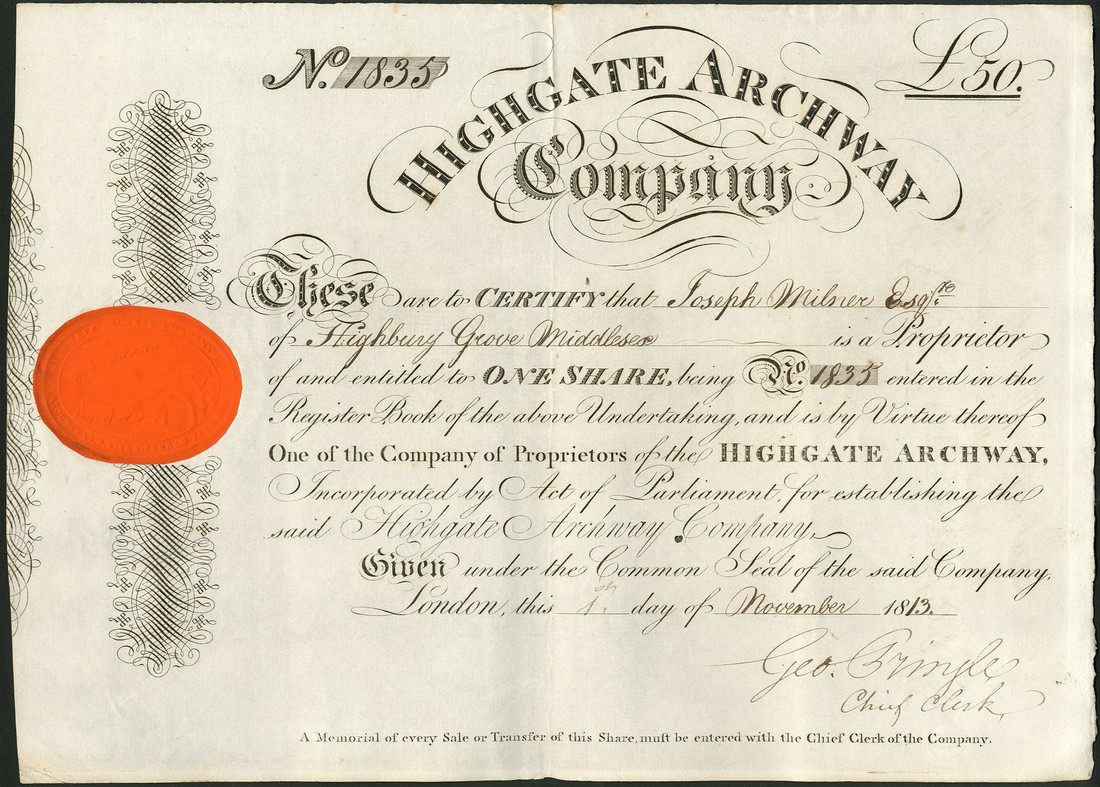 No. 1835
£50.
HIGHGATE ARCHWAY
Company
These are to CERTIFY that Joseph Milner Esqre
of Highbury Grove Middlesex is a Proprietor
of and entitled to ONE SHARE, being No. 1835 entered in the
Register Book of the above Undertaking, and is by Virtue thereof
One of the Company of Proprietors of the HIGHGATE ARCHWAY,
Incorporated by Act of Parliament, for establishing the
said Highgate Archway Company.
Given under the Common Seal of the said Company.
London, this 1st. day of November 1813.
Geo. Pringle
Chief Clerk
A Memorial of every Sale or Transfer of this Share, must be entered with the Chief Clerk of the Company.